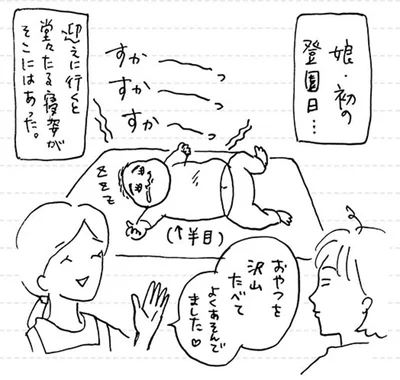 娘・初の
登園日…
すかーっ
すかーっ
すかーっ
迎えに行くと
堂々たる寝姿が
そこにはあった。
zzz
(↑半目)
おやつを
沢山
たべて
よくあそんで
ました♡